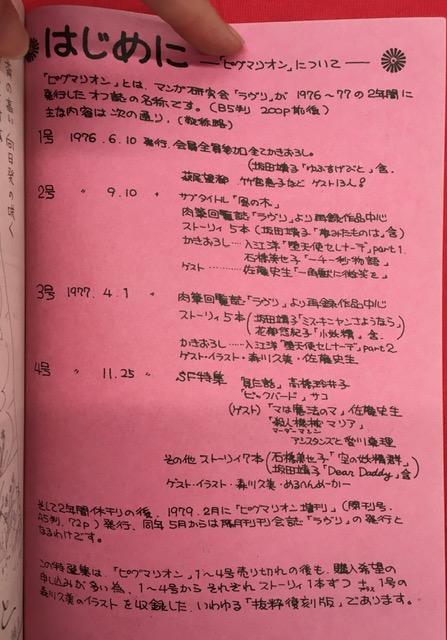 はじめに ―「ピグマリオン」について―
「ピグマリオン」とは、マンガ研究会「ラヴリ」が 1976～77の2年間に
発行したオフ誌の名称です。(B5判 200p前後)
主な内容は次の通り。(敬称略)
1号 1976.6.10 発行. 会員全員参加全てかきおろし。
(坂田靖子「ゆうすげびと」含.
萩尾望都 竹宮恵子など ゲスト13人
2号 〃 9.10 〃 サブタイトル「風の木」
肉筆回覧誌「ラヴリ」より再録作品中心
ストーリィ5本(坂田靖子「夢みたものは」含)
かきおろし……入江洋「堕天使セレナーデ」part1.
石橋美世子「一千一秒物語」
ゲスト………佐藤史生「一角獣に微笑を」
3号 1977.4.1 〃 肉筆回覧誌「ラヴリ」より再録作品中心
ストーリィ5本(坂田靖子「ミス・キニヤンさようなら」
花郁悠紀子「小妖精」含.)
かきおろし……入江洋「堕天使セレナーデ」part2
ゲスト・イラスト・森川久美・佐藤史生
4号 〃 11.25 〃 SF特集 高橋玲井子
「ビックバード」サコ
(ゲスト)「マは魔法のマ」佐藤史生
「殺人機械マリア」
マーダーマシン
アシスタンズと
その他 ストーリィ7本(石橋美世子「空の妖精群」
坂田靖子「Dear Daddy」含)
ゲスト・イラスト・森川久美・めるへんめーかー
そして2年間休刊の後、1979.2月に「ピグマリオン増刊」(
A5判.72p)発行、同年5月からは隔月刊会誌「ラヴリ」の発行と
なるわけです。
この特選集は、「ピグマリオン」1～4号売り切れの後も、購入希望の
申し込みが多い為、1～4号からそれぞれストーリィ1本ずつ＋1号の
プラス
森川久美のイラストを収録した、いわゆる「抜粋復刻版」であります。